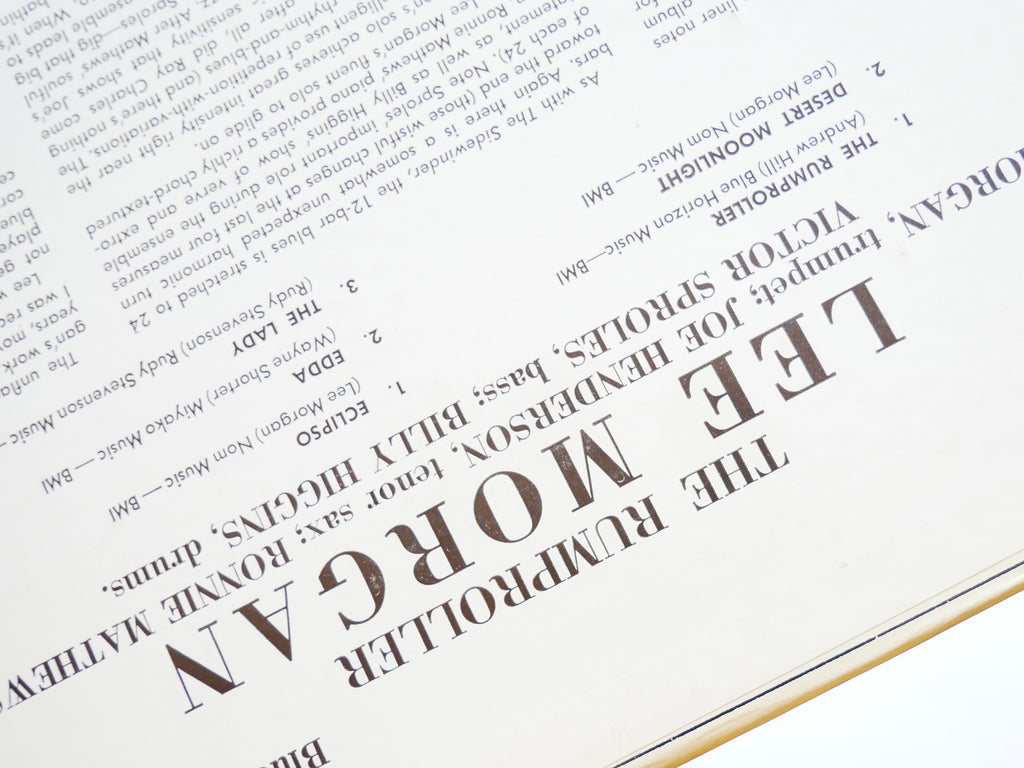 THE RUMPROLLER
LEE MORGAN
MORGAN, trumpet; JOE HENDERSON, tenor sax; RONNIE MATHEWS
VICTOR SPROLES, bass; BILLY HIGGINS, drums.
1. THE RUMPROLLER
(Andrew Hill) Blue Horizon Music—BMI
2. DESERT MOONLIGHT
(Lee Morgan) Nom Music—BMI
1. ECLIPSO
(Lee Morgan) Nom Music—BMI
2. EDDA
(Wayne Shorter) Miyako Music—BMI
3. THE LADY
(Rudy Stevenson) Rudy Stevenson Music—BMI
liner notes
album
As with The Sidewinder, the 12-bar blues is stretched to 24
bars. Again there is a somewhat unexpected harmonic turn
toward the end (those wistful changes at the last four measures
of each 24). Note Sproles' important role during the ensemble
statement, as well as Billy Higgins' show of verve and extro-
Ronnie Mathews' piano provides a richly chord-textured
Lee Morgan's fluent solo to glide on.
solo achieves great intensity right near the
use of repetition-with-variations. The
rhythm-and-blues (and there's nothing
after all, did Ray Charles come
sensitivity that shows Joe's
After Mathews' soulful
Sproles—dig that big
leads to
When it's
The unfla
gan's work
years, mov
I was rec
Lee w
not ge
playe
blue